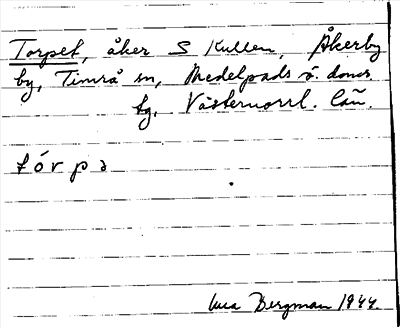 Torpet, åker S Kullen, Åkerby
by, Timrå sn, Medelpads ö. doms.
tg, Västernorrl. län.
tórpə
Bergman 1944.